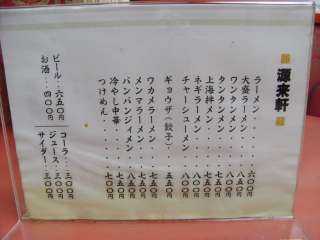 源来軒
ラーメン‥‥‥六〇〇円
大盛ラーメン‥‥七五〇円
ワンタンメン‥‥八〇〇円
タンタンメン‥‥七五〇円
上海絆メン‥‥七五〇円
ネギラーメン‥‥八〇〇円
チャーシューメン‥八〇〇円
ギョウザ（餃子）‥五五〇円
ワカメラーメン‥七五〇円
メンマラーメン‥七五〇円
バンバンジィメン‥八五〇円
冷やし中華‥‥七〇〇円
つけめん‥‥‥七〇〇円
ビール‥六五〇円
お酒‥四〇〇円
コーラ‥三〇〇円
ジュース‥三〇〇円
サイダー‥三〇〇円